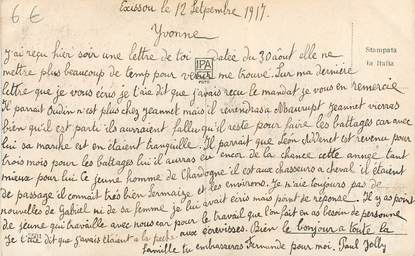 6 €
Excissou le 12 Setpembre 1917.
Yvonne
J'ai reçu hier soir une lettre de toi datée du 30 août elle ne
mettre plus beaucoup de temp pour venir me trouvé. Sur ma dernière
lettre que je vous écris je t'aie dit que j'avais reçu le mandat je vous en remercie
Il parait Oudin n'est plus chez Jeannet mais il reviendras a Jeannet vierras
bien qu'il est parti ils auraient fallu qu'il reste pour faire les battages car avec
lui sa marche est on étaient tranquille. Il parait que Léon est revenu pour
trois mois pour les battages lui il auras eu encor de la chance cette année tant
mieux pour lui ce jeune homme de Chardogne il est aux chasseurs a cheval il étaient
de passage il connaît très bien Sermaize et les environs. Je n'aie toujours pas de
nouvelles de Gabriel ni de sa femme je lui avait écris mais point de réponse. Il y as point
de jeune qui travaille avec nous car pour le travail que l'on fait on as besoin de personne
Je t'aie dit que j'avais étaient a la peche aux écrevisses. Bien le bonjour a toute la
famille tu embrasseras Fernande pour moi. Paul Jolly
IPA
FOTO
Stampata
in Italia